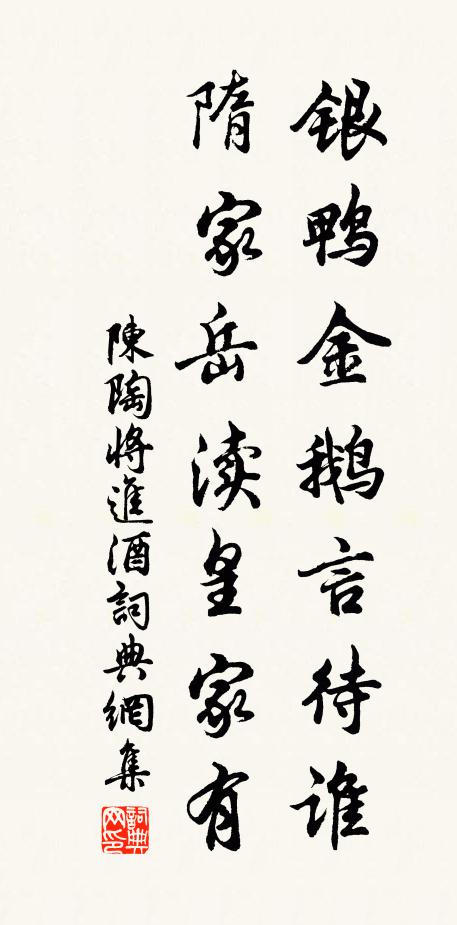 银鸭金鹅言待谁
隋家岳渎皇家有
陳陶將進酒詞典網集
詞典网印